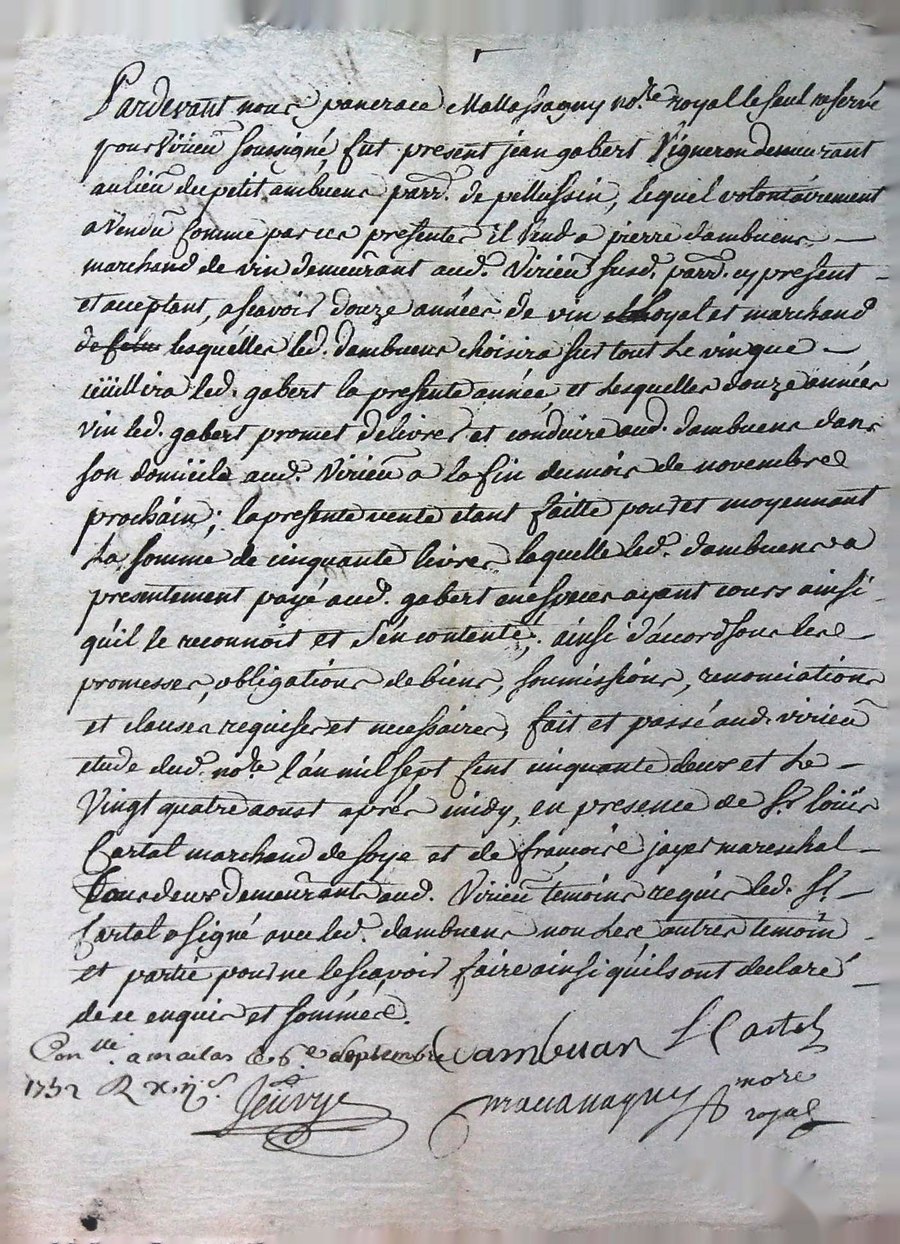 Pardevant nous pancrace Mallassagny no.re royal le seul reservé
pour Virieu soussigné fut present jean gabert Vigneron demeurant
au lieu du petit ambuens parr. de pellussin, lequel volontairement
a Vendu comme par ces presentes il Vend a pierre dambuens
marchand de vin demeurant aud. Virieu susd. parr. cy present
et acceptant, ascavoir douze années de vin loyal et marchand
lesquelles led. dambuens choisira sur tout le vin que
cuüillira led. gabert la presente année et lesquelles douze années
vin led. gabert promet delivrer et conduire aud. dambuens dans
son domicile aud. Virieu a la fin du mois de novembre
prochain; la presente vente etant faitte pour et moyennant
la somme de cinquante livres laquelle led. dambuens a
presentement payé aud. gabert en espèces ayant cours ainsi
quil le reconnoit et s'en contente; ainsi d'accord sous les
promesses, obligations de biens, soumissions, renonciations
et clauses requises et necessaires, fait et passé aud. virieu
etude dud. no.re l'an mil sept cent cinquante deux et le
Vingt quatre aoust aprés midy, en presence de Sr. loüis
Cartal marchand de soye et de francois jayet mareshal
tous deux demeurants aud. Virieu temoins requis led. Sr.
Cartal a signé avec led. dambuens non les autres temoin
et partie pour ne le scavoir faire ainsi quils ont declaré
de ce enquis et sommés.
Con.lé a malas le 6.e septembre dambuan L Cartal
1752 R
Jeuvye mallassagny nore
royal